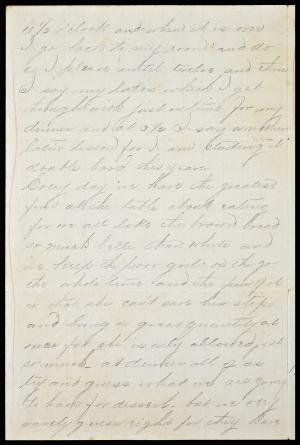 10½ o'clock and when it is over
I go back to my room and do
as I please until twelve and then
I say my latin which I get
through with just in time for my
dinner and at 3½ I say another
latin lesson for I am studying it
double hard this year.
Every day we have the greatest
fun at the table about eating
for we all like the brown bread
so much better than white and
we keep the poor girl on the go
the whole time and the fun of it
is that she can't save her steps
and bring a great quantity at
once for she is only allowed just
so much. at dinner all of us
try and guess what we are going
to have for dessert but we very
rarely guess right for they have